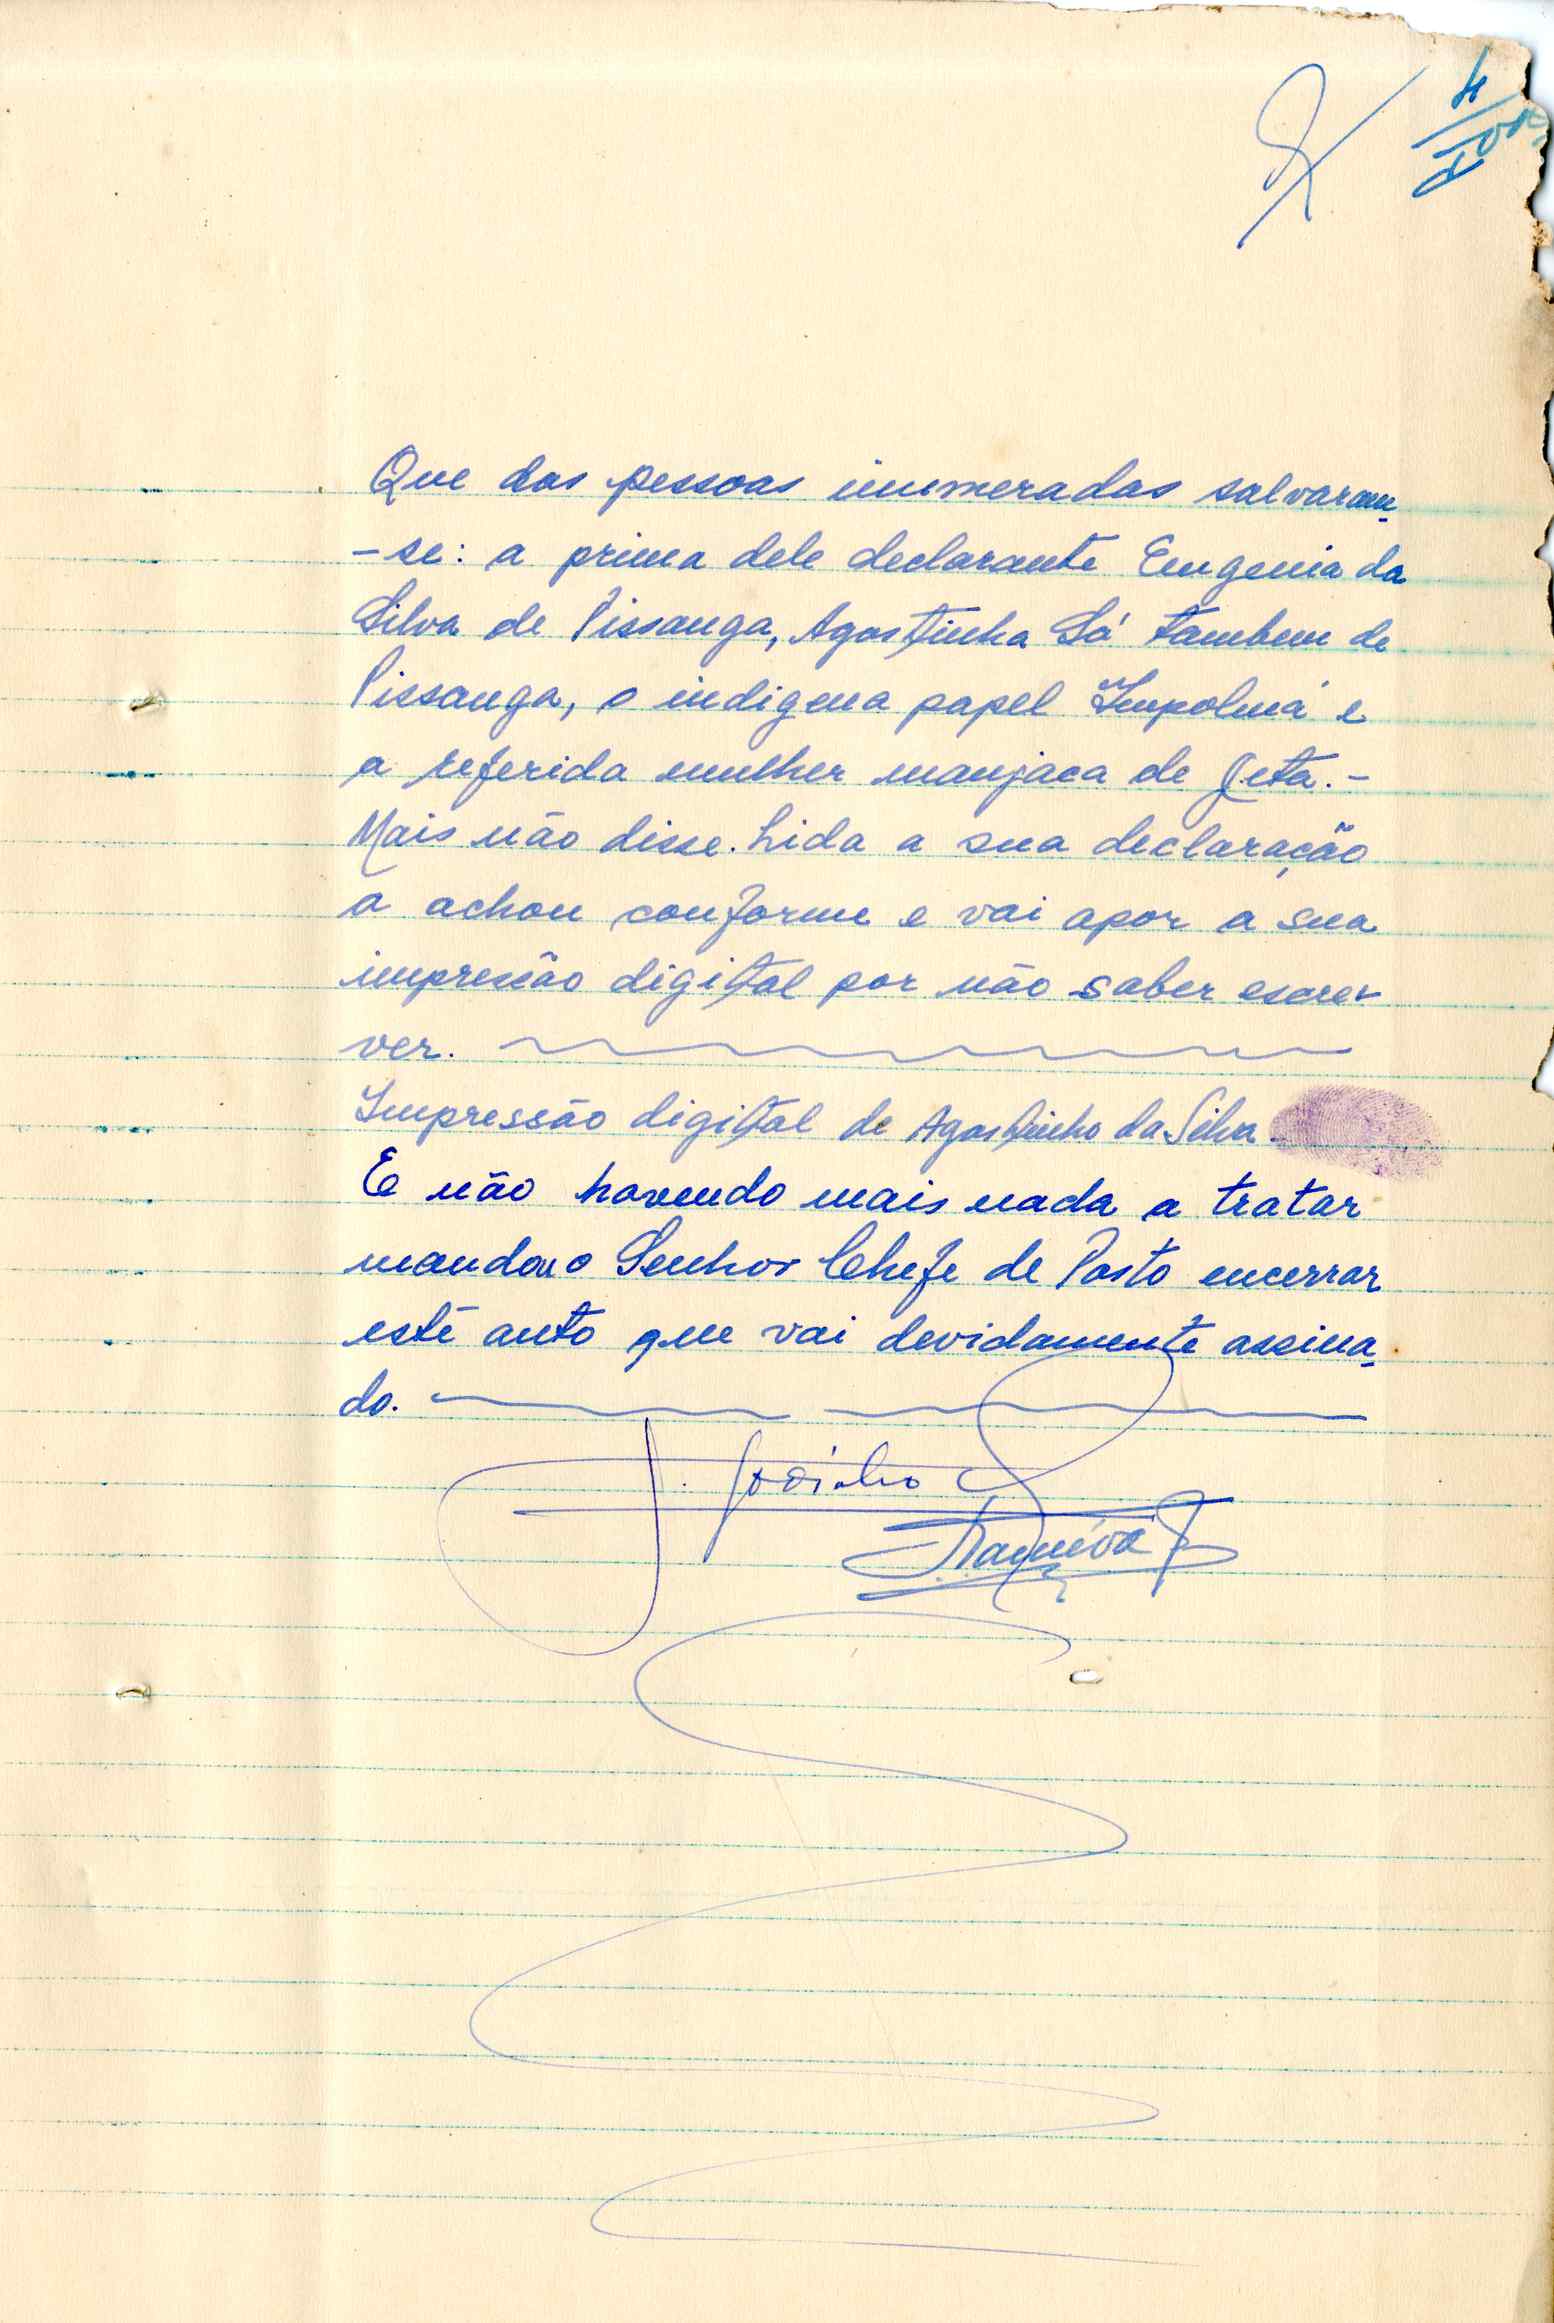 Que das pessoas inumeradas salvaram-
-se: a prima dele declarante Eugenia da
Silva de Pissanga, Agostinha Sá tambem de
Pissanga, o indigena papel Impolmá e
a referida mulher manjaca de Jeta.-
Mais não disse. Lida a sua declaração
a achou conforme e vai apor a sua
impressão digital por não saber escre-
ver.
Impressão digital de Agostinho da Silva
E não havendo mais nada a tratar
mandou o Senhor Chefe de Posto encerrar
este auto que vai devidamente assina-
do.
J. Godinho